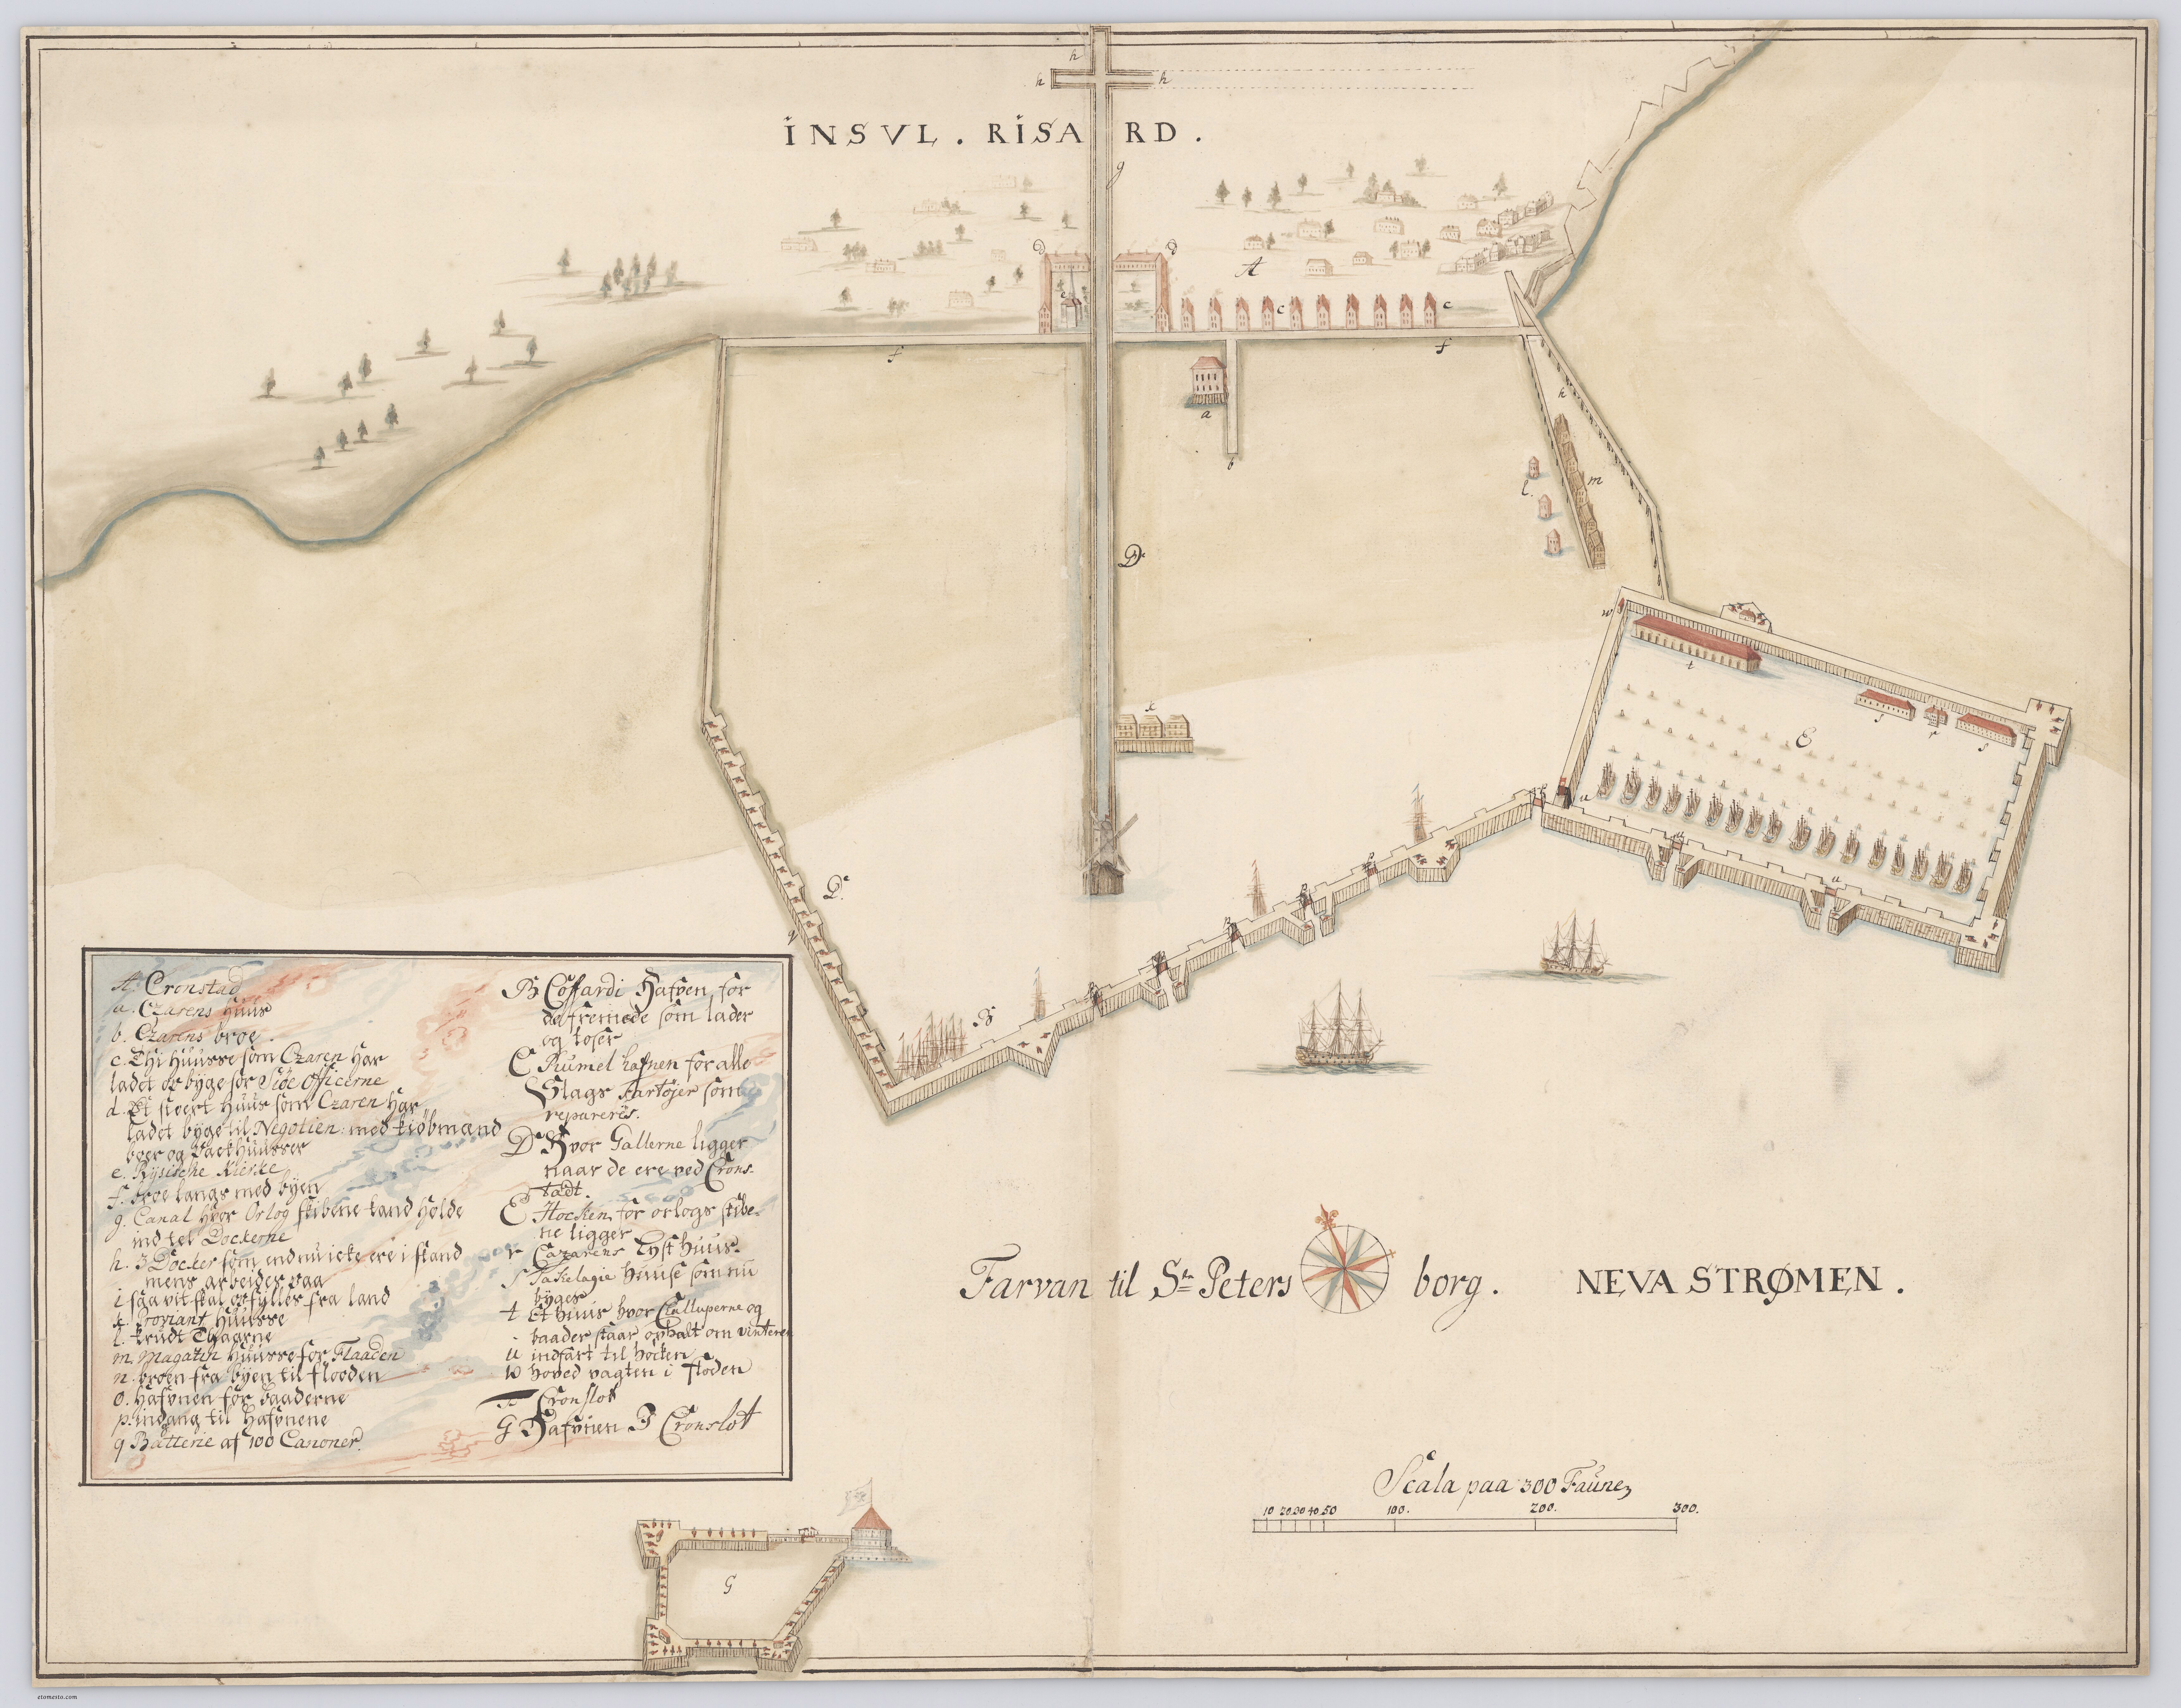 h
h
h
INSVL. RISARD.
g
d
d
e
A
c
c
f
f
a
b
h
l.
m
D
w
t
k
s
r
s
E
u
u
u
D.
q
B
A. Cronstad
a. Czarens Huus
b. Czarens broe.
c. Thi Huusse som Czaren har
ladet opbyge for Siöe Officerne
d. Et stoert Huus som Czaren har
ladet byge til Negotien: med kiöbmænd
boer og Packhuusser
e. Rysische Kierke
f. broe langs med byen
g. Canal hvor Orlog skibene kand holde
ind til Dockerne
h. 3 Docker som endnu icke ere i stand
mens arbeides paa
i saa vit skal opfylles fra land
k. Proviant Huusse
l. Krudt Thaarne
m. Magazin Huusse for Flaaden
n. broen fra byen til flooden
o. Hafvnen for baaderne
p. indgang til Hafvnene
q Batterie af 100 Canoner.
B Coffardi Hafven for
de fremede som lader
og loser
C Rumel hafnen for alle
Slags Fartöjer som
repareres.
D Hvor Gallerne ligger
naar de ere ved Crons-
tadt.
E Hocken for orlogs skibe-
ne ligger
r Czarens Lyst huus.
s Takelagie huuse som nu
byges
t Et huus hvor Challuperne og
baader staar ophalt om vinteren
u indfart til höcken
w hoved vagten i Floden
F Cronslot
G Hafvnen I Cronslot
Farvan til St. Petersborg.
NEVA STRØMEN.
Scala paa 300 Faune
10 20 30 40 50 100. 200. 300.
G
etomesto.com